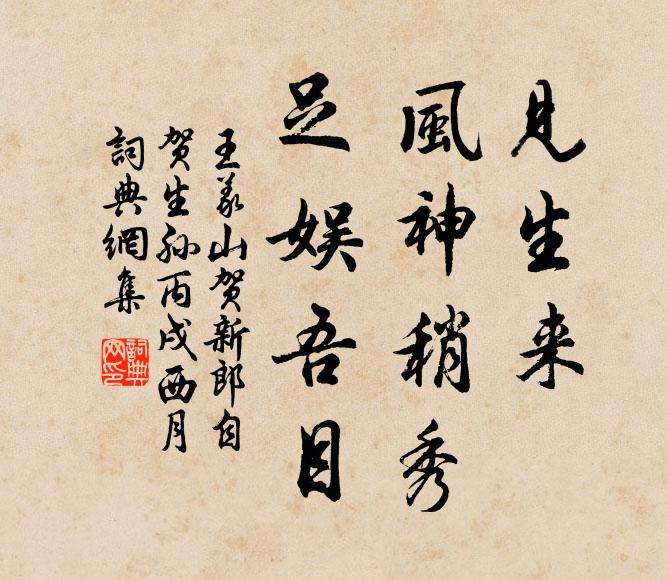 見生来
風神稍秀
足娱吾目
王义山賀新郎自
贺生孙丙戌酉月
詞典網集
詞典
网印